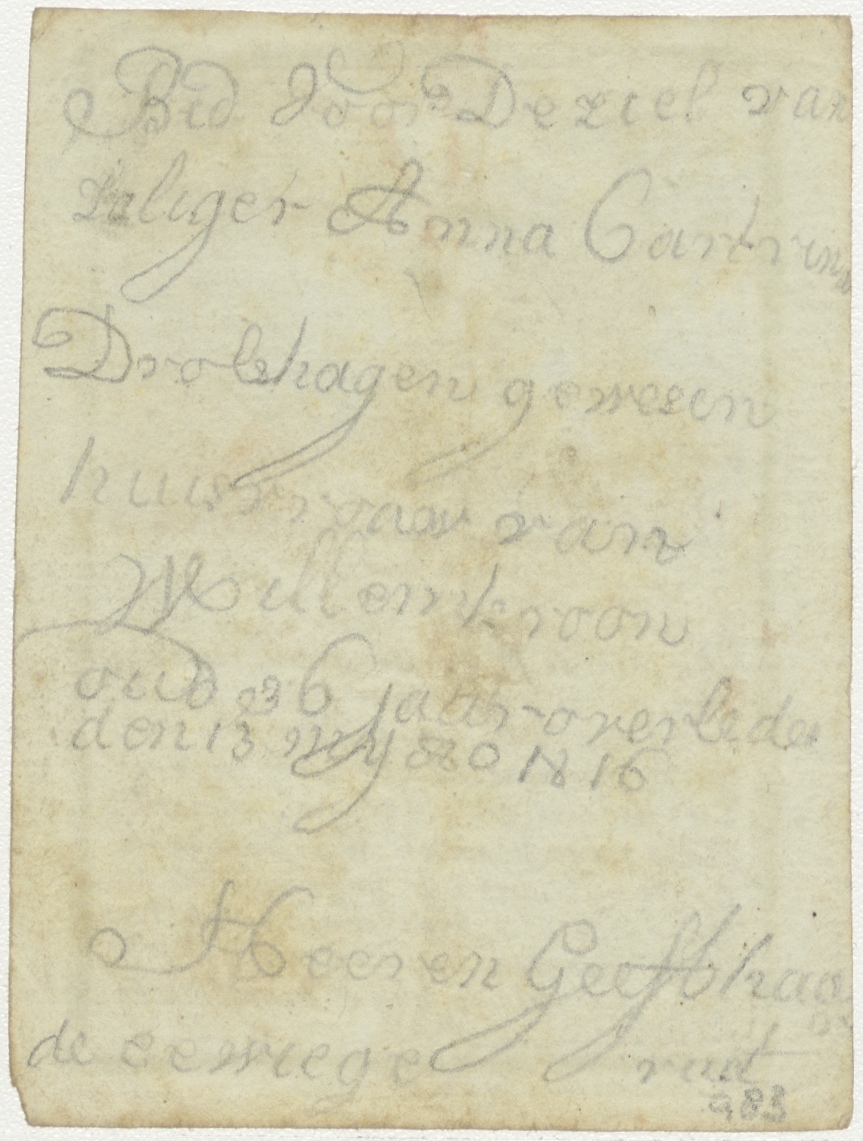 Bid voor De ziel van
zeliger Anna Cartrina
Drolshagen gewesen
huisvroaw van
Willem kroon
oud 36 jaar overleden
den 13 mÿ Ao 1816
Heer en Geeft haar
de eewiege rust
983